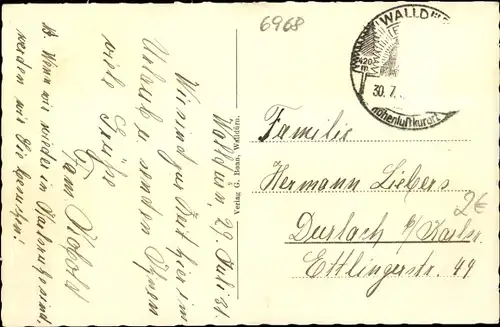 6968
WALLD
420 m
30.7.
Höhenluftkurort
Walldürn, 29. Juli 31.
Wir sind zur Zeit hier im
Urlaub u. senden Ihnen
viele Grüße
Fam.
Wenn wir wieder in Karlsruhe sind,
werden wir Sie besuchen!
Verlag G. Baan, Walldürn.
Familie
Hermann Liebers
Durlach b/Karlsr.
Ettlingerstr. 49
2€